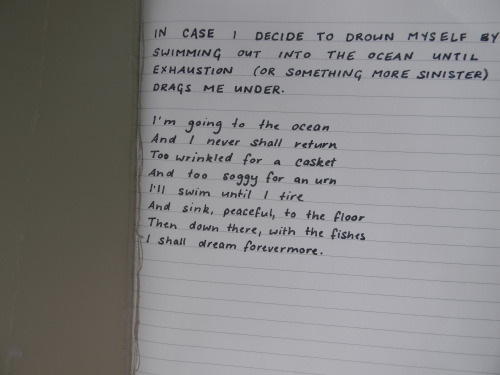 IN CASE I DECIDE TO DROWN MYSELF BY
SWIMMING OUT INTO THE OCEAN UNTIL
EXHAUSTION (OR SOMETHING MORE SINISTER)
DRAGS ME UNDER.
I'm going to the ocean
And I never shall return
Too wrinkled for a casket
And too soggy for an urn
I'll swim until I tire
And sink, peaceful, to the floor
Then down there, with the fishes
I shall dream forevermore.